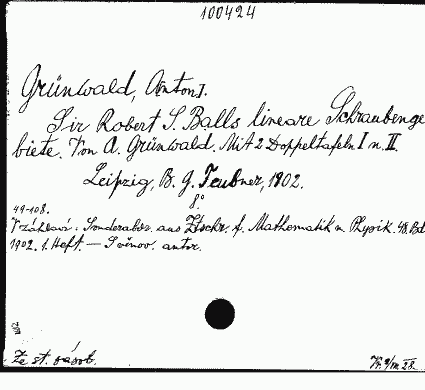 100424
Grünwald, Anton I.
Sir Robert S. Balls lineare Schraubenge
biete. Von A. Grünwald. Mit 2 Doppeltafeln I u. II.
Leipzig, B. G. Teubner, 1902.
8°
49-108.
V záhlaví: Sonderabdr. aus Ztschr. f. Mathematik u. Physik. 48. Bd.
1902. 1. Heft. — S věnov. autor.
Ze st. zásob.